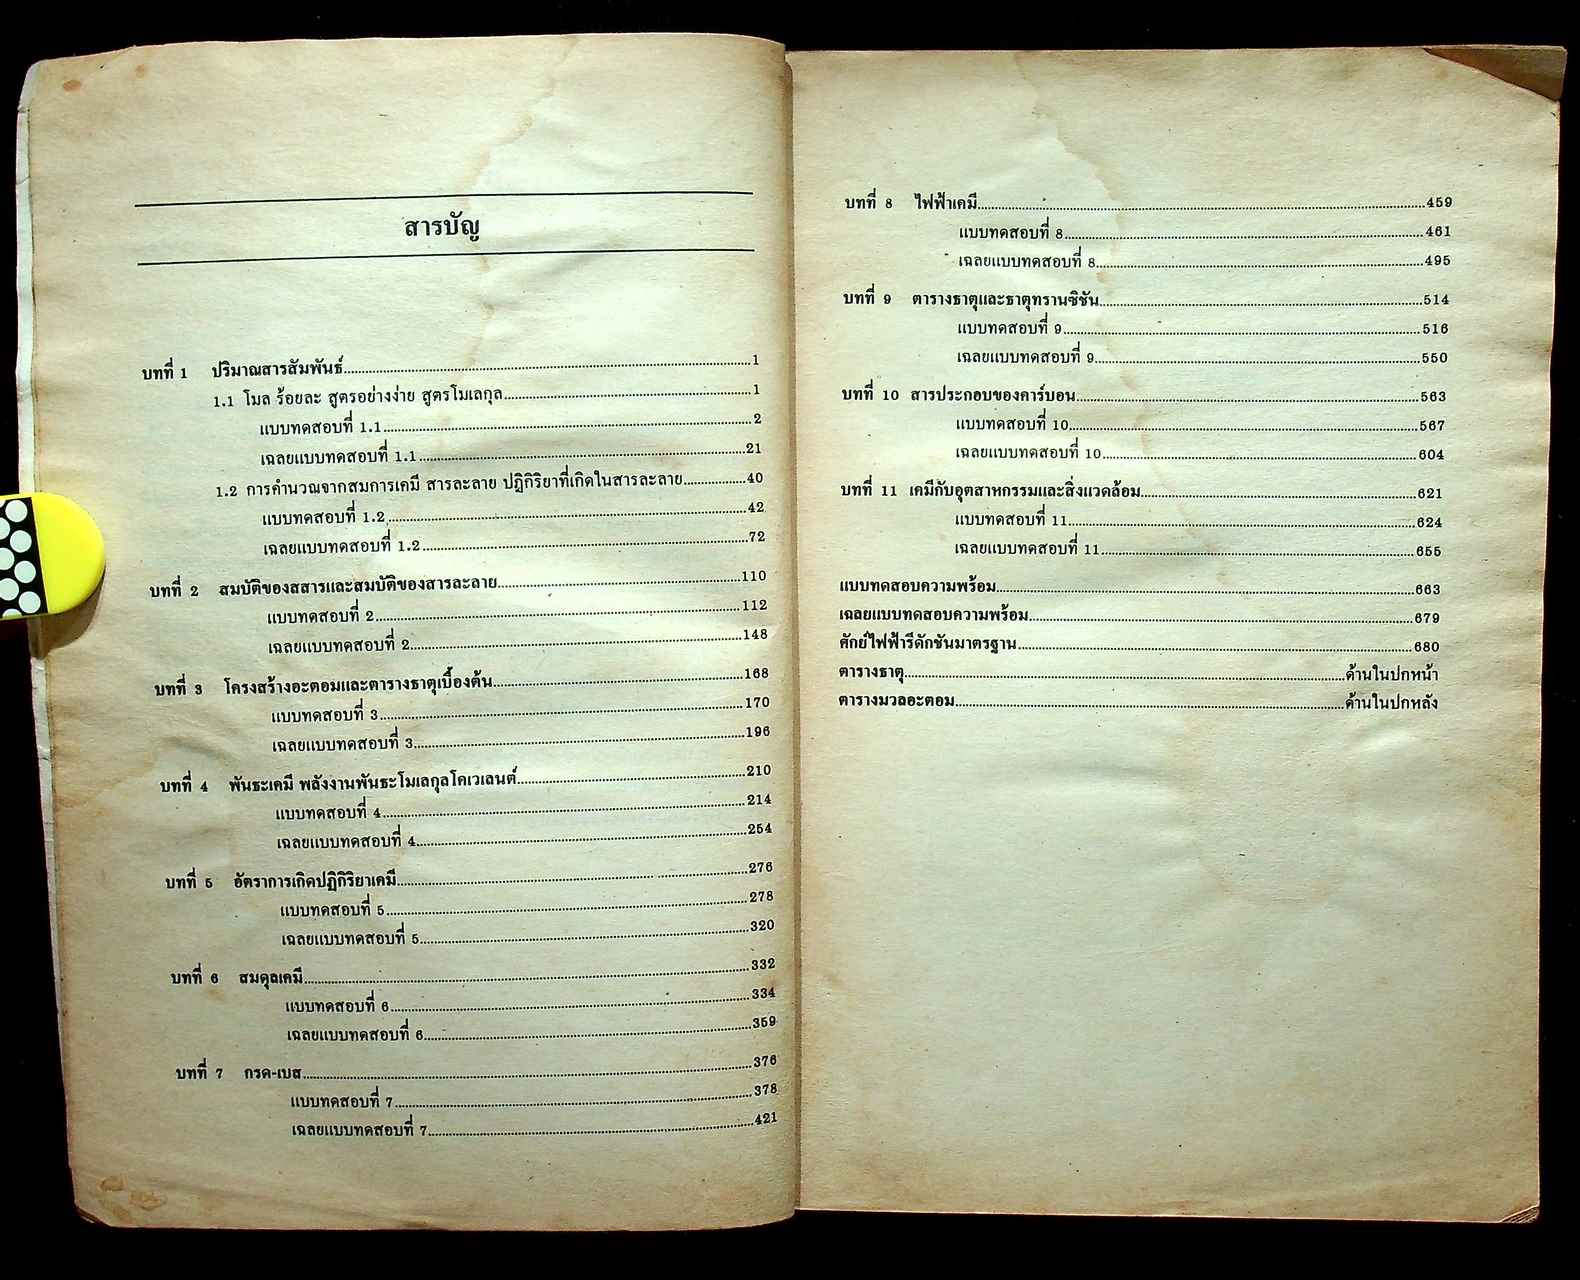 สารบัญ
บทที่ 1 ปริมาณสารสัมพันธ์....................1
1.1 โมล ร้อยละ สูตรอย่างง่าย สูตรโมเลกุล....................1
แบบทดสอบที่ 1.1....................2
เฉลยแบบทดสอบที่ 1.1....................21
1.2 การคำนวณจากสมการเคมี สารละลาย ปฏิกิริยาที่เกิดในสารละลาย....................40
แบบทดสอบที่ 1.2....................42
เฉลยแบบทดสอบที่ 1.2....................72
บทที่ 2 สมบัติของสสารและสมบัติของสารละลาย....................110
แบบทดสอบที่ 2....................112
เฉลยแบบทดสอบที่ 2....................148
บทที่ 3 โครงสร้างอะตอมและตารางธาตุเบื้องต้น....................168
แบบทดสอบที่ 3....................170
เฉลยแบบทดสอบที่ 3....................196
บทที่ 4 พันธะเคมี พลังงานพันธะโมเลกุลโคเวเลนต์....................210
แบบทดสอบที่ 4....................214
เฉลยแบบทดสอบที่ 4....................254
บทที่ 5 อัตราการเกิดปฏิกิริยาเคมี....................276
แบบทดสอบที่ 5....................278
เฉลยแบบทดสอบที่ 5....................320
บทที่ 6 สมดุลเคมี....................332
แบบทดสอบที่ 6....................334
เฉลยแบบทดสอบที่ 6....................359
บทที่ 7 กรด-เบส....................376
แบบทดสอบที่ 7....................378
เฉลยแบบทดสอบที่ 7....................421
บทที่ 8 ไฟฟ้าเคมี....................459
แบบทดสอบที่ 8....................461
เฉลยแบบทดสอบที่ 8....................495
บทที่ 9 ตารางธาตุและธาตุทรานซิชัน....................514
แบบทดสอบที่ 9....................516
เฉลยแบบทดสอบที่ 9....................550
บทที่ 10 สารประกอบของคาร์บอน....................563
แบบทดสอบที่ 10....................567
เฉลยแบบทดสอบที่ 10....................604
บทที่ 11 เคมีกับอุตสาหกรรมและสิ่งแวดล้อม....................621
แบบทดสอบที่ 11....................624
เฉลยแบบทดสอบที่ 11....................655
แบบทดสอบความพร้อม....................663
เฉลยแบบทดสอบความพร้อม....................679
ศักย์ไฟฟ้ารีดักชันมาตรฐาน....................680
ตารางธาตุ....................ด้านในปกหน้า
ตารางมวลอะตอม....................ด้านในปกหลัง